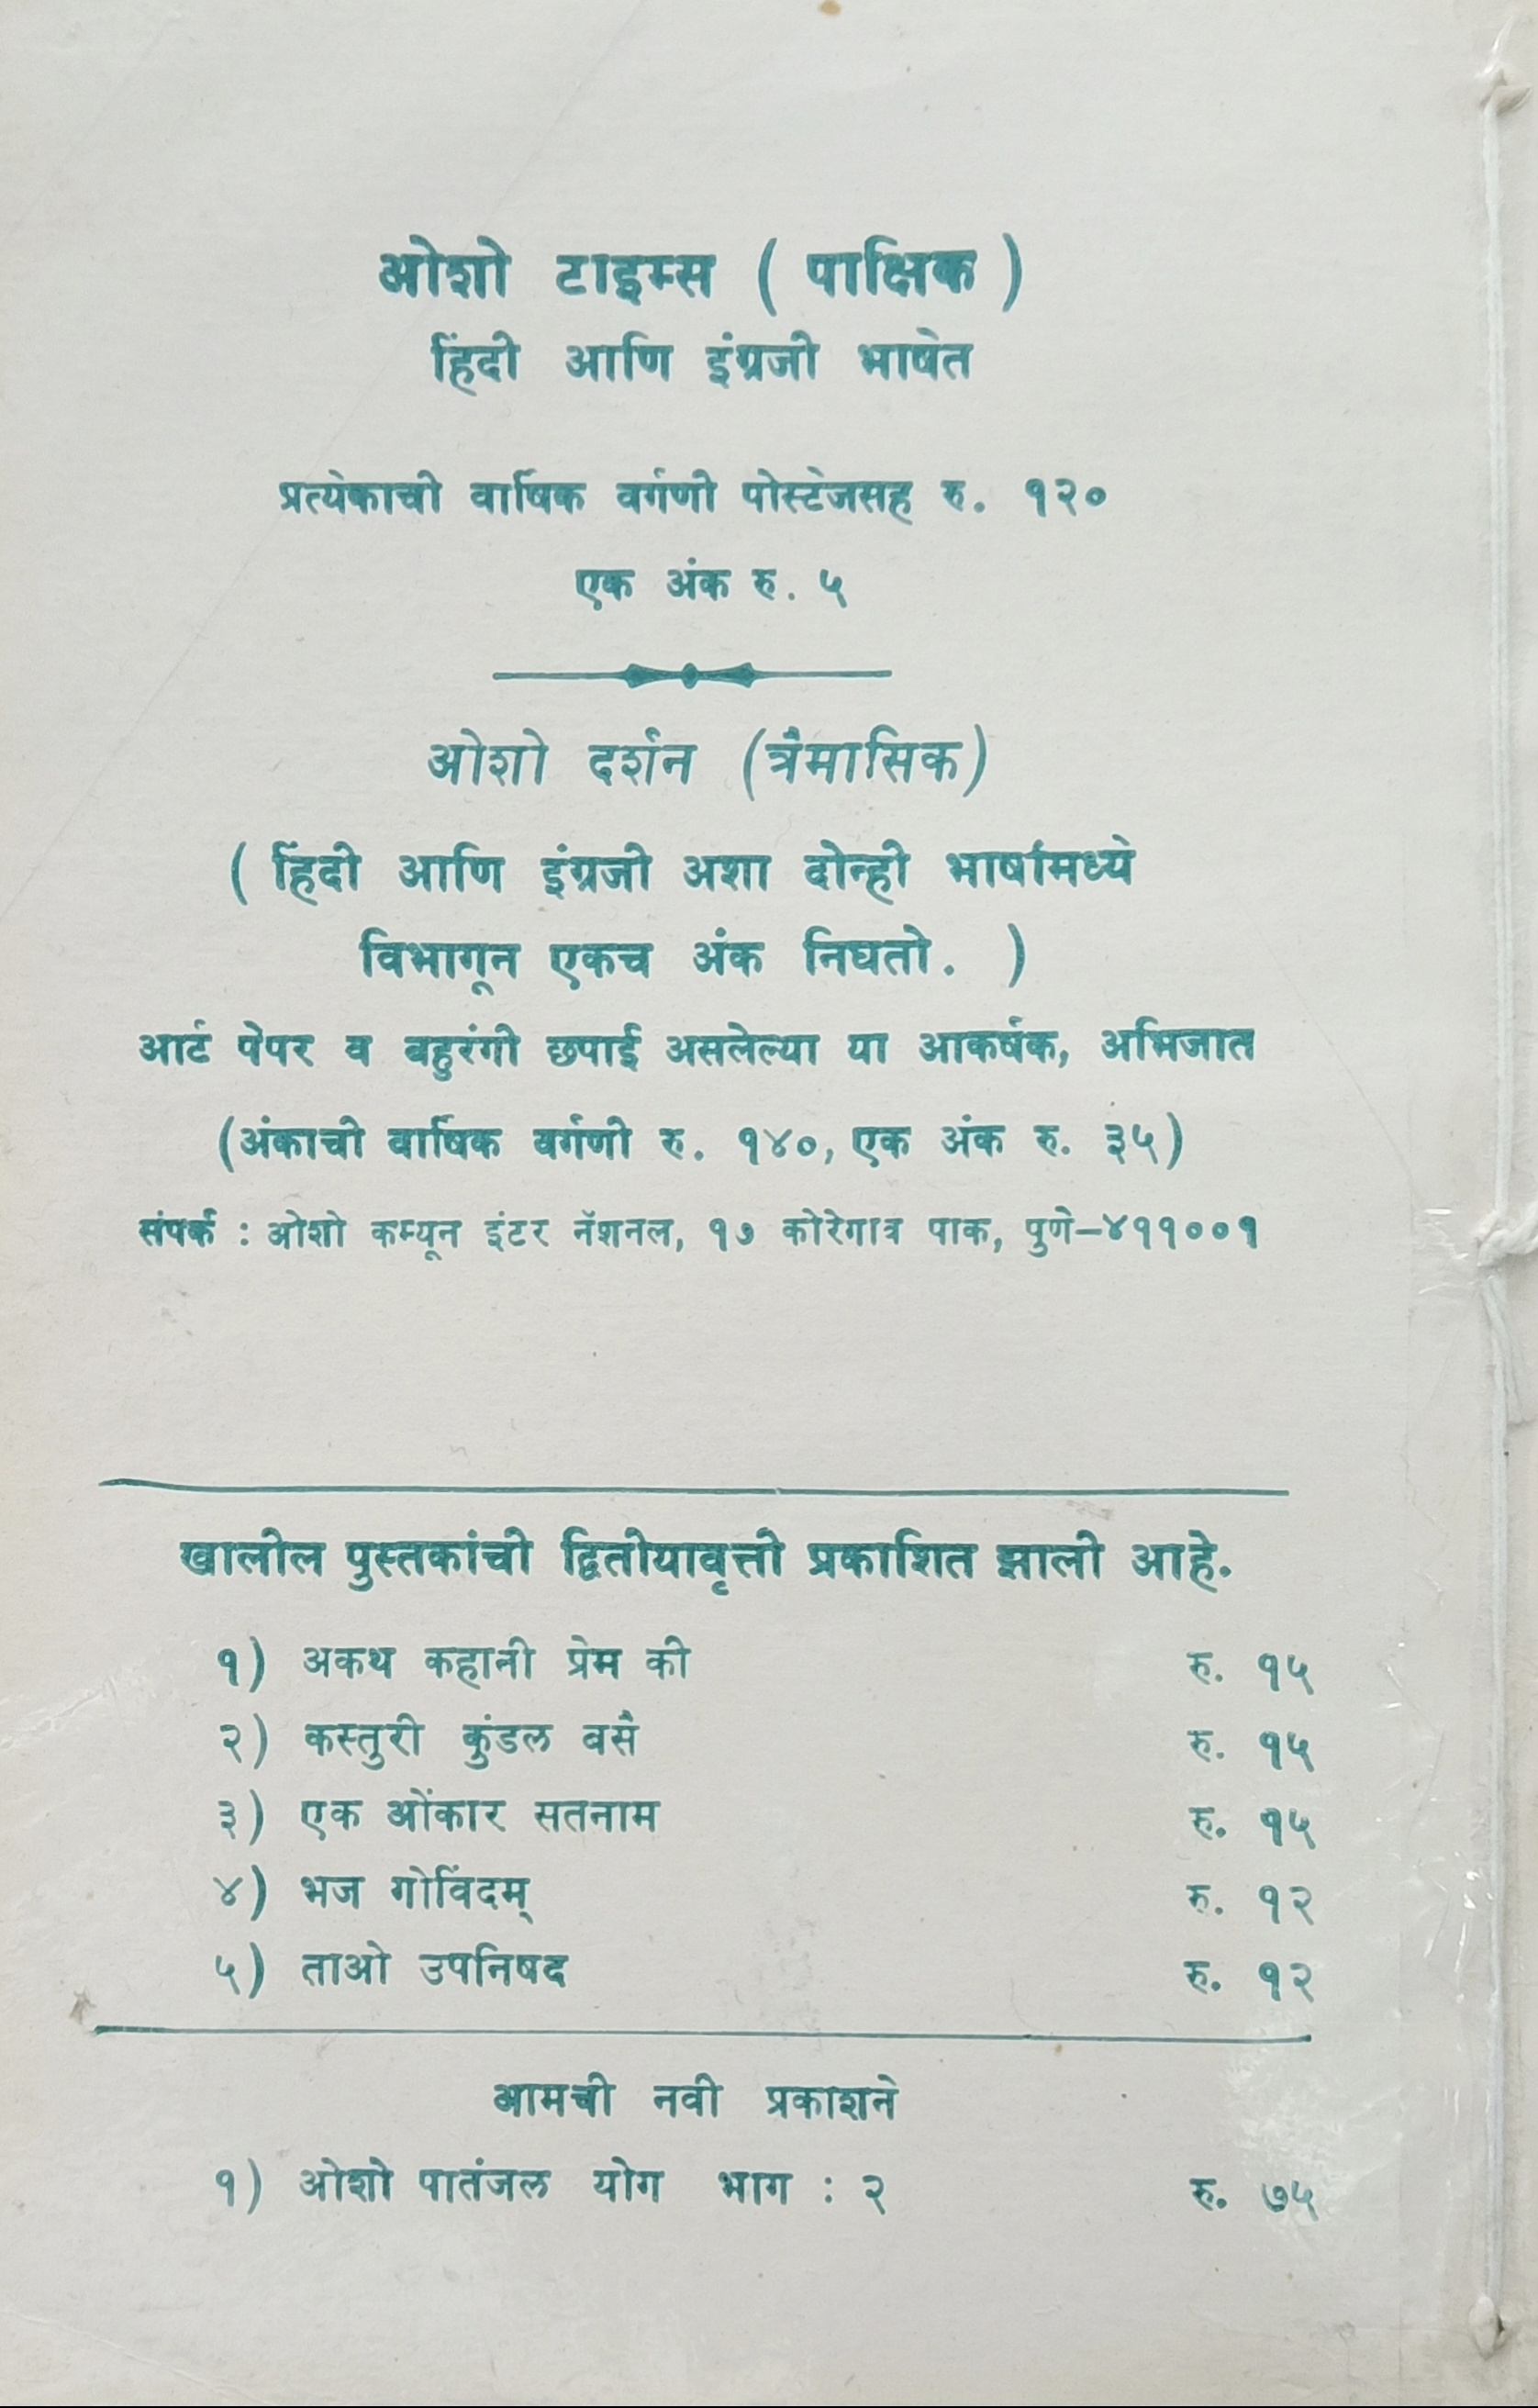 ओशो टाइम्स ( पाक्षिक )
हिंदी आणि इंग्रजी भाषेत
प्रत्येकाची वार्षिक वर्गणी पोस्टेजसह रु. १२०
एक अंक रु. ५
ओशो दर्शन (त्रैमासिक)
( हिंदी आणि इंग्रजी अशा दोन्ही भाषांमध्ये
विभागून एकच अंक निघतो. )
आर्ट पेपर व बहुरंगी छपाई असलेल्या या आकर्षक, अभिजात
(अंकाची वार्षिक वर्गणी रु. १४०, एक अंक रु. ३५)
संपर्क : ओशो कम्यून इंटर नॅशनल, १७ कोरेगात्र पाक, पुणे–४११००१
खालील पुस्तकांची द्वितीयावृत्ती प्रकाशित झाली आहे.
१) अकथ कहानी प्रेम की रु. १५
२) कस्तुरी कुंडल बसै रु. १५
३) एक ओंकार सतनाम रु. १५
४) भज गोविंदम् रु. १२
५) ताओ उपनिषद रु. १२
आमची नवी प्रकाशने
१) ओशो पातंजल योग भाग : २ रु. ७५